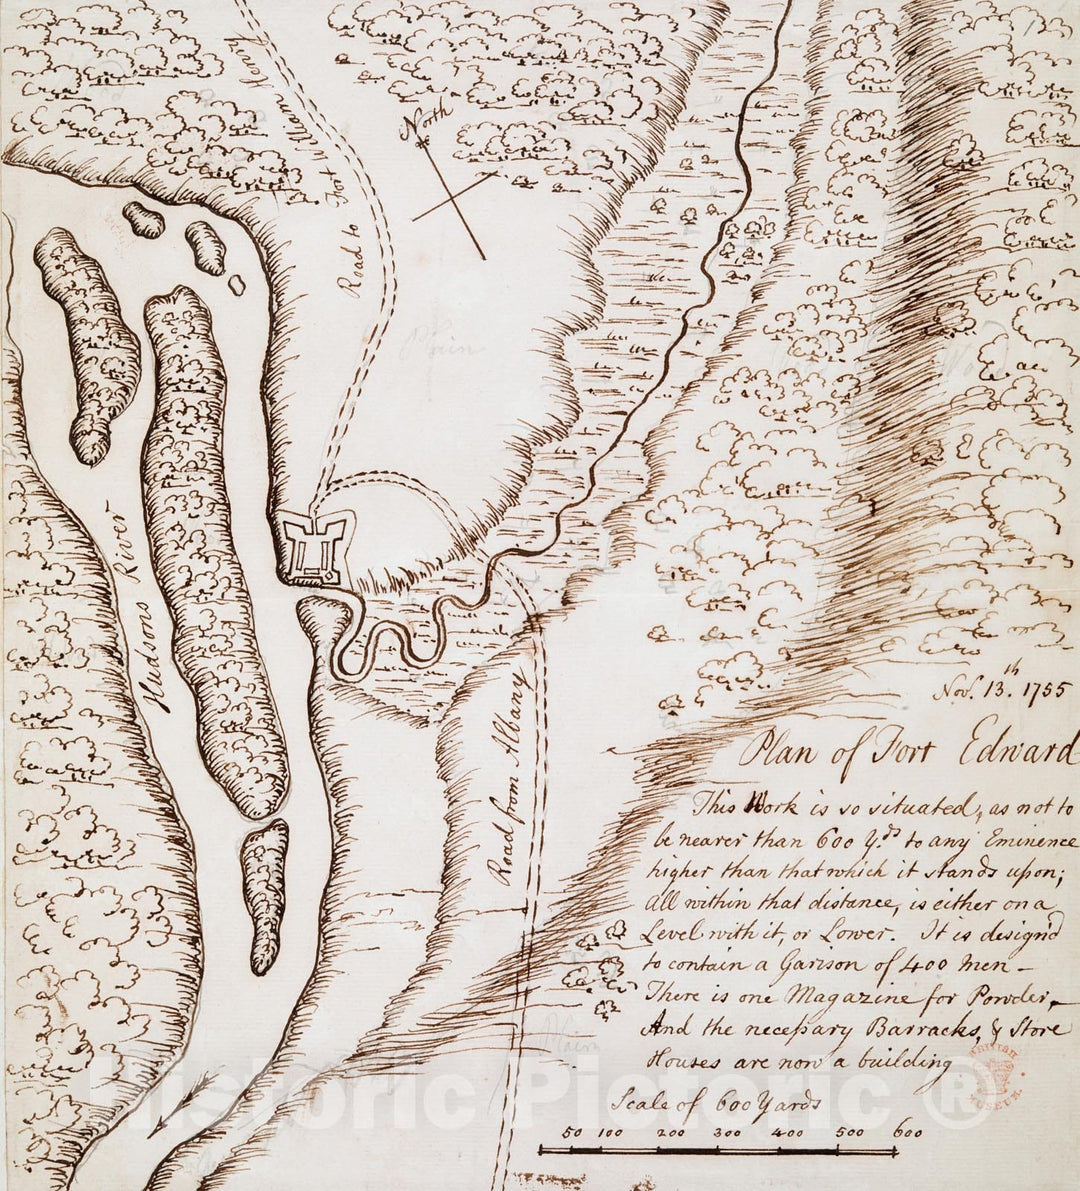 Road to Fort William Henry
North
Plain
Wood
Hudsons River
Road from Albany
Nov.r 13.th 1755
Plan of Fort Edward
This Work is so situated, as not to
be nearer than 600 Y.ds to any Eminence
higher than that which it stands upon;
all within that distance, is either on a
Level with it, or Lower. It is design'd
to contain a Garison of 400 men —
There is one Magazine for Powder,
And the necessary Barracks, & Store
Houses are now a building
Plain
Scale of 600 Yards
50 100 200 300 400 500 600
BRITISH MUSEUM
Historic Pictoric ®